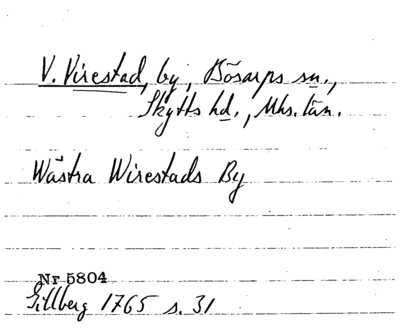 V. Virestad, by, Bösarps sn.,
Skytts hd., Mhs. län.
Wästra Wirestads By
Nr 5804
Gillberg 1765 s. 31